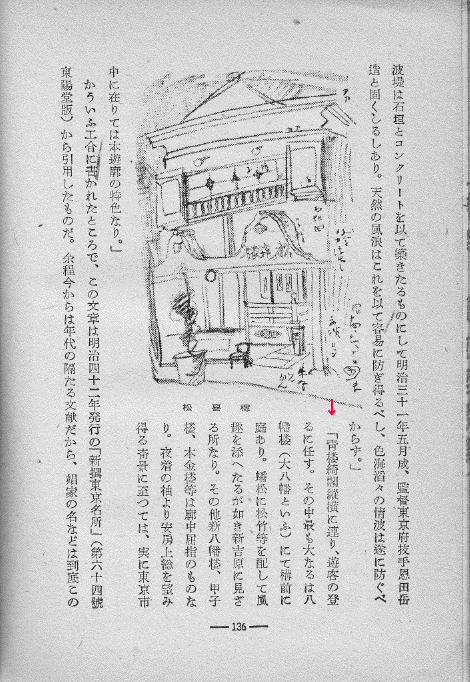 波堤は石垣とコンクリートを以て築きたるものにして明治三十一年五月成、監督東京府技手恩田岳
造と固くしるしあり。天然の風浪はこれを以て容易に防ぎ得るべし、色海滔々の情波は遂に防ぐべ
からず。」
「青楼綺閣縦横に連り、遊客の登
るに任す。その中最も大なるは八
幡楼（大八幡といふ）にて楼前に
庭あり。矮松に松竹等を配して風
趣を添へたるが如き新吉原に見ざ
る所なり。その他新八幡楼、甲子
楼、本金楼等は廓中屈指のものな
り。夜滔の柚より安房上総を望み
得る香景に至つては、実に東京市
松喜楼
中に在りては本遊廓の特色なり。」
かういふ工合に書かれたところで、この文章は明治四十二年発行の『新撰東京名所』（第六十四號
東陽堂版）から引用したものだ。余程今からは年代の隔たる文献だから、娼家の名などは到底この
— 136 —